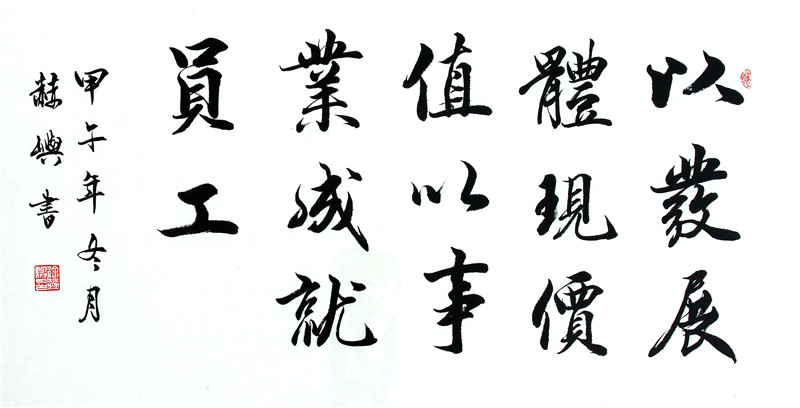 以發展
體現價
值以事
業成就
員工
甲午年冬月
赫嶼書